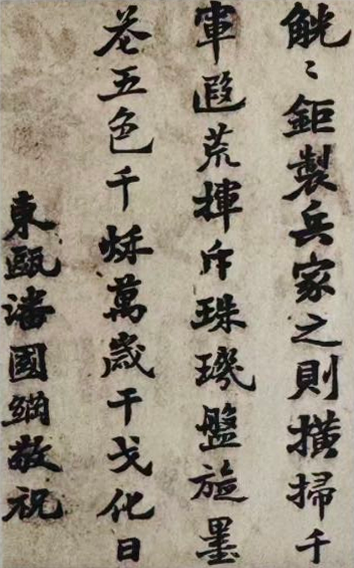 觥〻鉅製兵家之則橫掃千
軍遐荒揮斥珠璣盤旋墨
花五色千秌萬歲干戈化日
東甌潘國綱敬祝